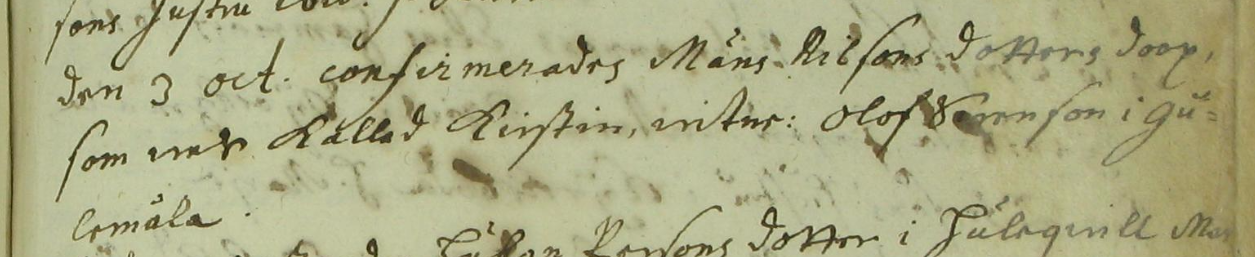 sons hustru
den 3 oct. confirmerades Måns Nilsons dotters doop,
som war kallad Kirstin, witne: Olof Svenson i Gu=
lemåla.
Håkan Persons dotter i Hulequill